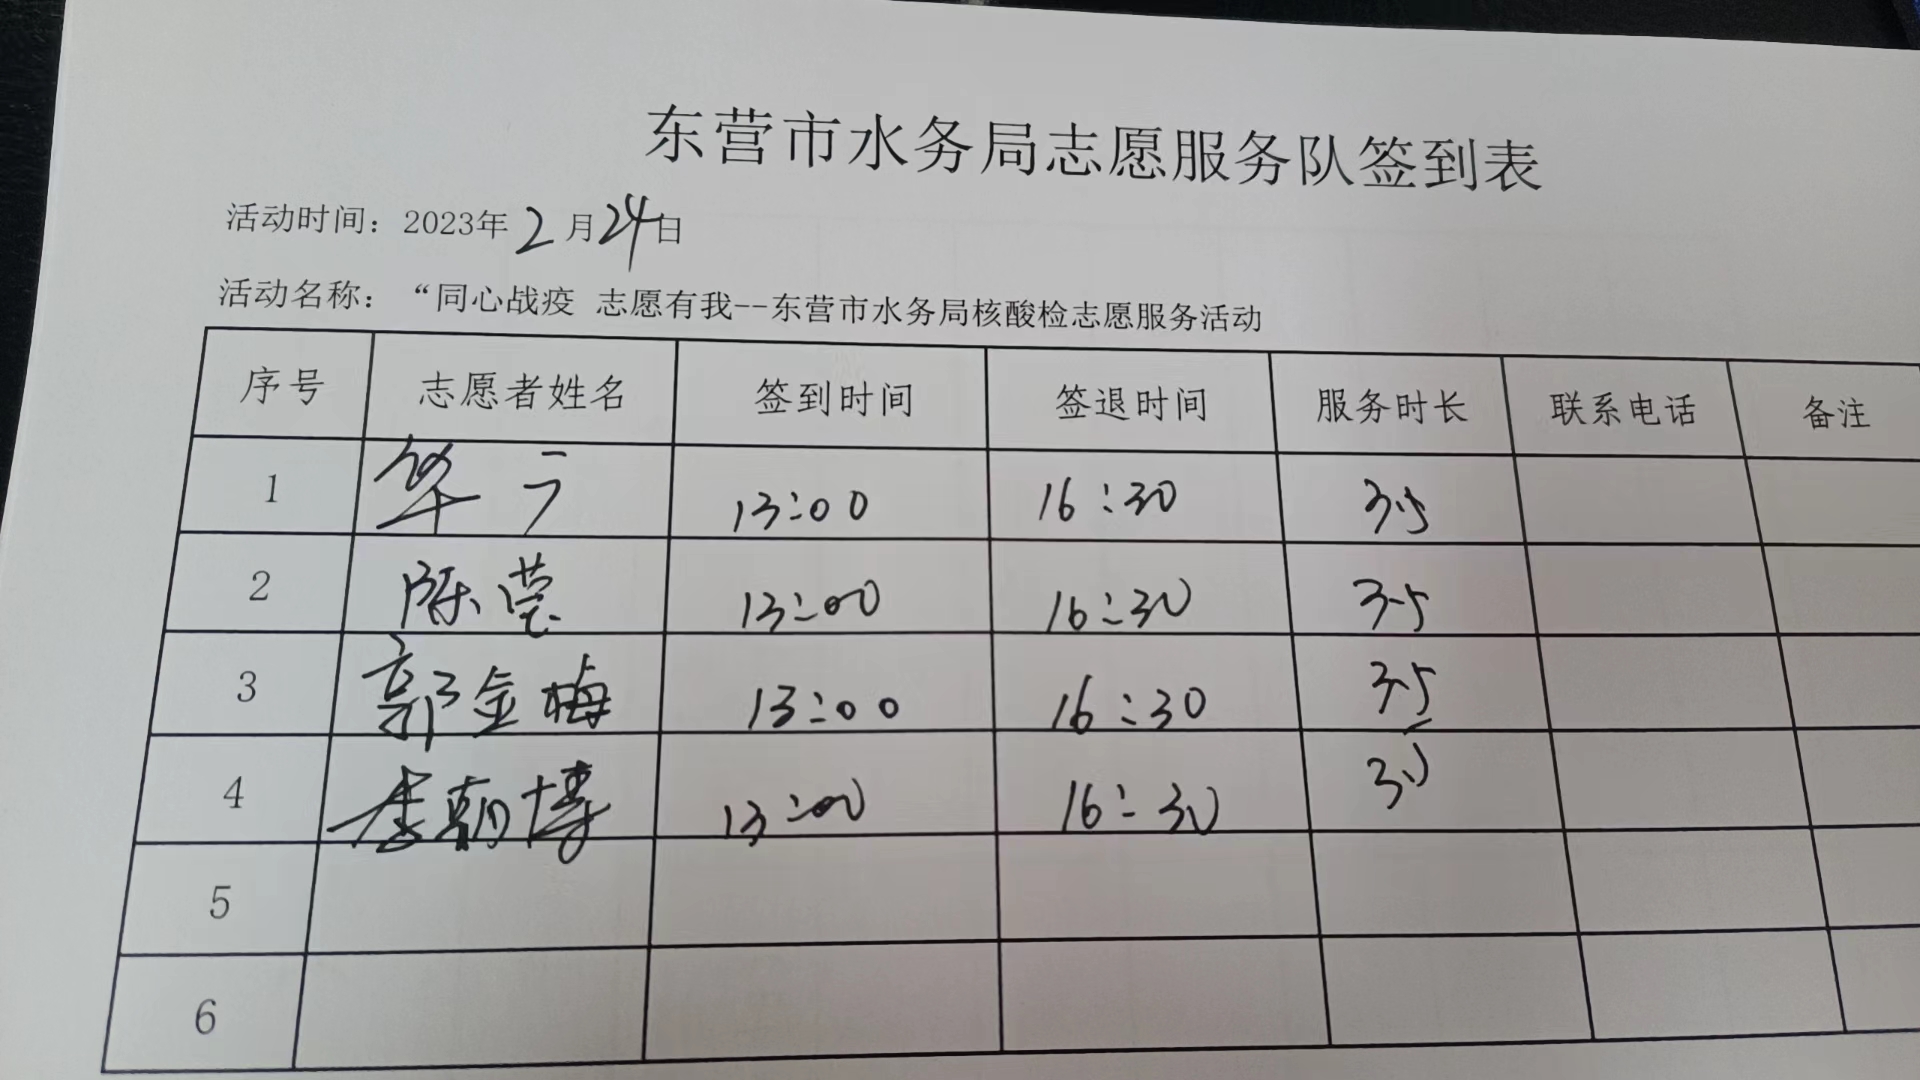 东营市水务局志愿服务队签到表
活动时间：2023年2月24日
活动名称：“同心战疫 志愿有我--东营市水务局核酸检志愿服务活动
序号 志愿者姓名 签到时间 签退时间 服务时长 联系电话 备注
1 13:00 16:30 3.5
2 陈莹 13:00 16:30 3.5
3 郭金梅 13:00 16:30 3.5
4 李朝博 13:00 16:30 3.5
5
6